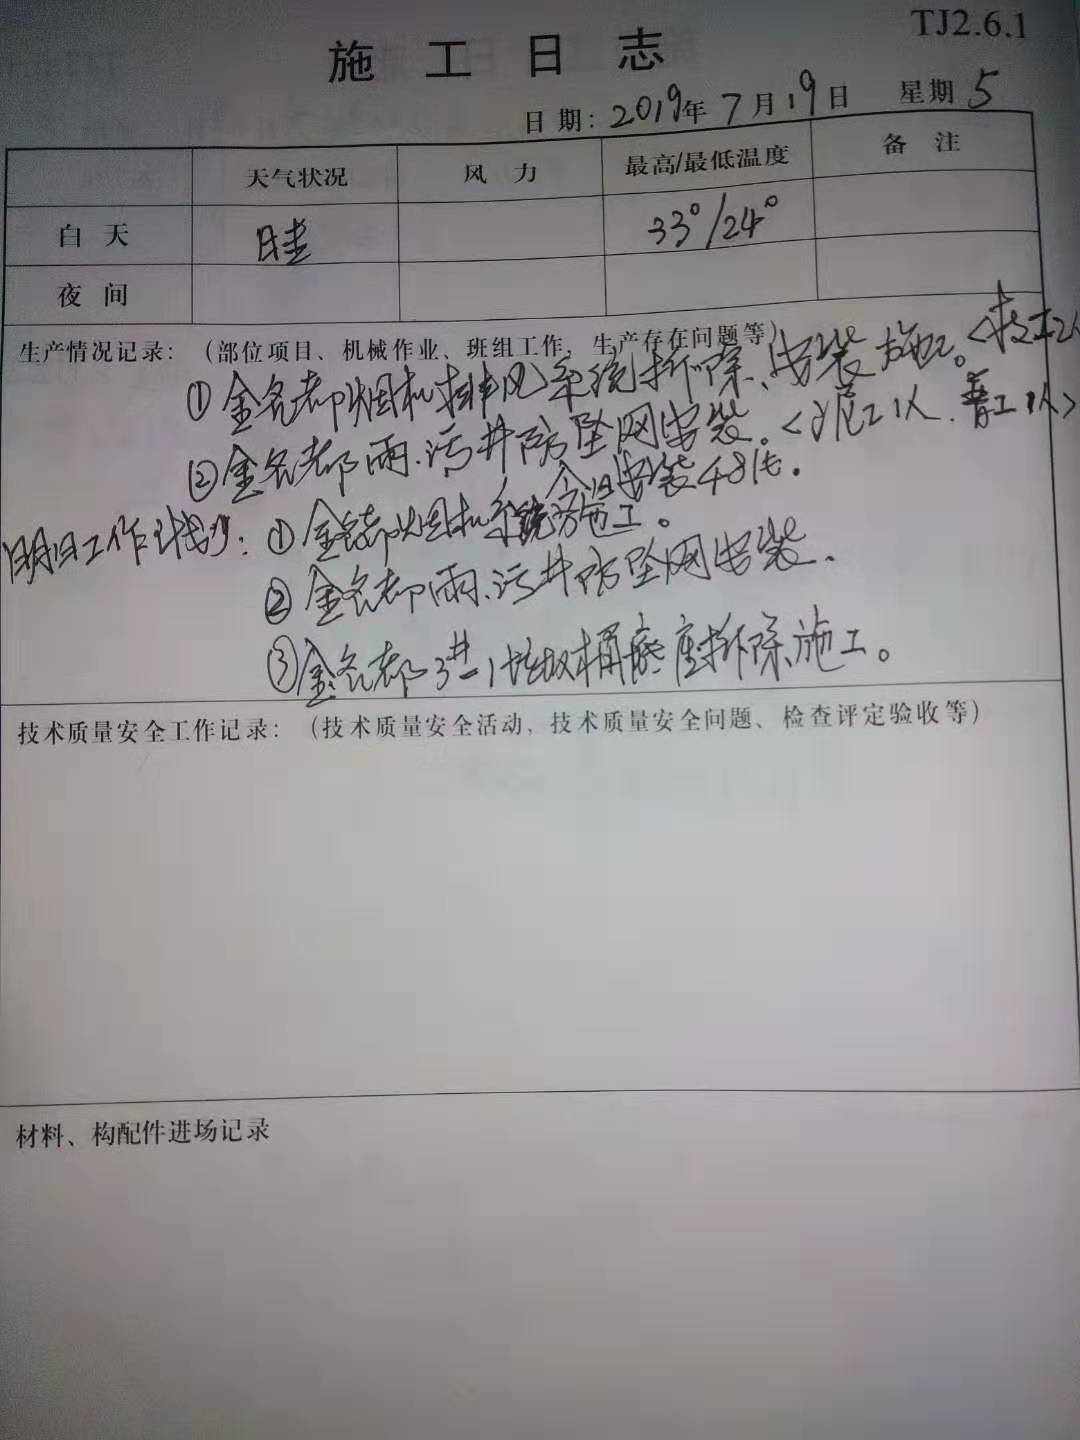 TJ2.6.1
施工日志
日期：2019年7月19日 星期5
天气状况 风力 最高/最低温度 备注
白天 晴 33°/24°
夜间
生产情况记录：（部位项目、机械作业、班组工作，生产存在问题等）
①金名都烟机排风系统拆除、安装施工。<技工2人
②金名都雨、污井防坠网安装。<泥工1人、普工1人>
今日安装48住.
明日工作计划：①金名都烟机系统施工。
②金名都雨、污井防坠网安装.
③金名都3#-1垃圾桶底座拆除施工。
技术质量安全工作记录：（技术质量安全活动，技术质量安全问题、检查评定验收等）
材料、构配件进场记录